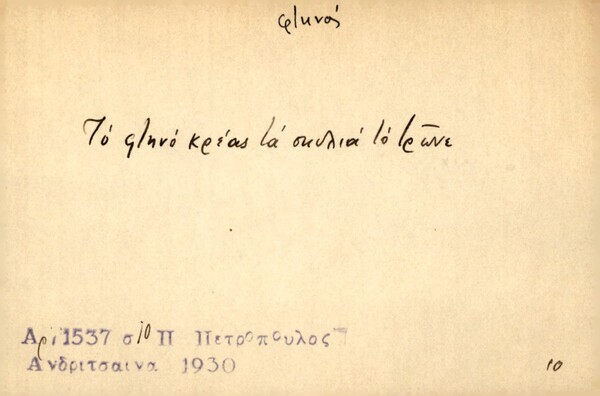 φτηνός
Τό φτηνό κρέας τά σκυλιά τό τρῶνε
Αρ. 1537 σ 10 Π Πετροπουλος
Ανδριτσαινα 1930
10